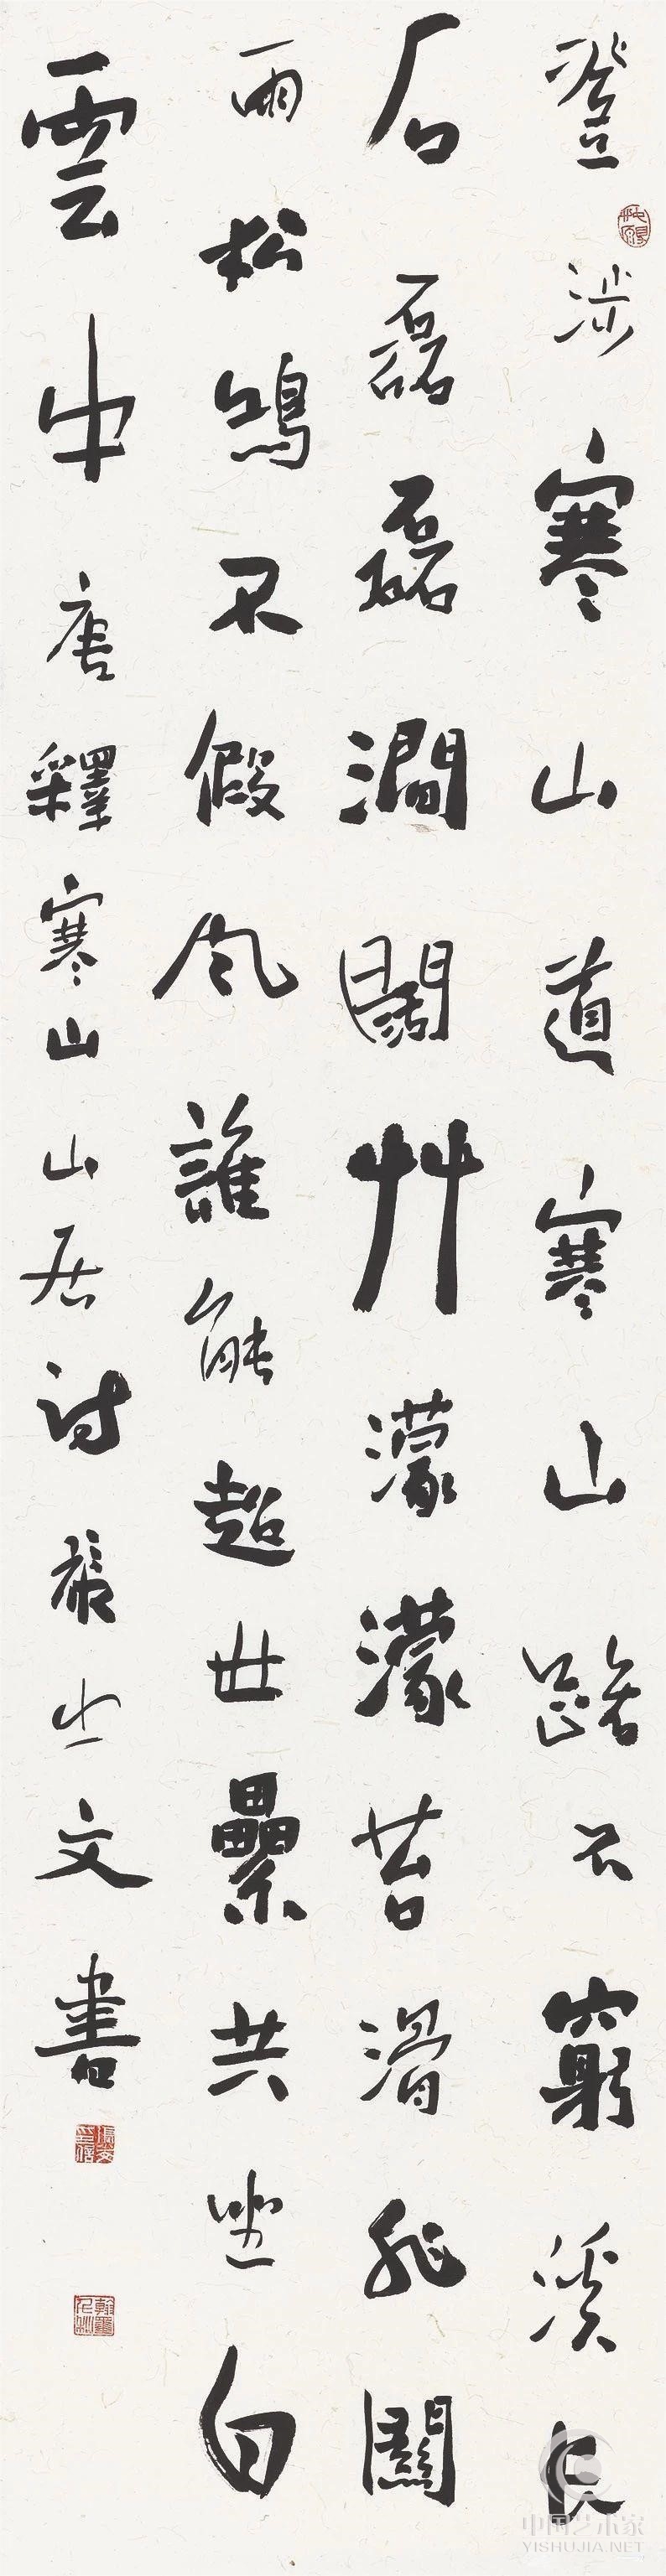 登涉寒山道寒山路不窮溪長
石磊磊澗闊艸濛濛苔滑非關
雨松鳴不假風誰能超世纍共坐白
雲中 唐釋寒山山居詩 張之文書
中国艺术家
YISHUJIA.NET